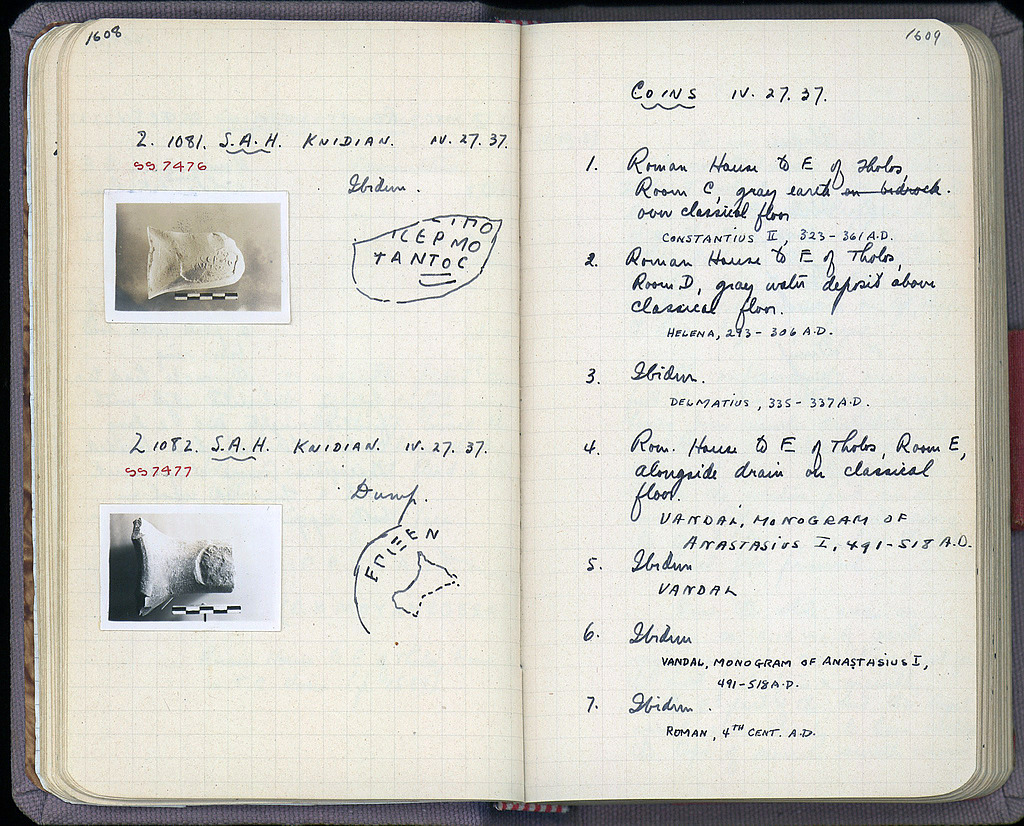 1608
2. 1081. S.A.H. KNIDIAN. IV. 27. 37.
SS 7476
Ibidem.
ΙΠΟ
ΙCΕΡΜΟ
ΤΑΝΤΟC
2 1082. S.A.H. KNIDIAN. IV. 27. 37.
SS 7477
Dump.
ΕΠΙΞΕΝ
1609
COINS IV. 27. 37.
1. Roman House to E of Tholos,
Room C, gray earth on bedrock.
over classical floor
CONSTANTIUS II, 323-361 A.D.
2. Roman House to E of Tholos,
Room D, gray water deposit above
classical floor.
HELENA, 293-306 A.D.
3. Ibidem.
DELMATIUS, 335-337 A.D.
4. Rom. House to E of Tholos, Room E,
alongside drain on classical
floor.
VANDAL, MONOGRAM OF
ANASTASIUS I, 491-518 A.D.
5. Ibidem
VANDAL
6. Ibidem
VANDAL, MONOGRAM OF ANASTASIUS I,
491-518 A.D.
7. Ibidem.
ROMAN, 4TH CENT. A.D.